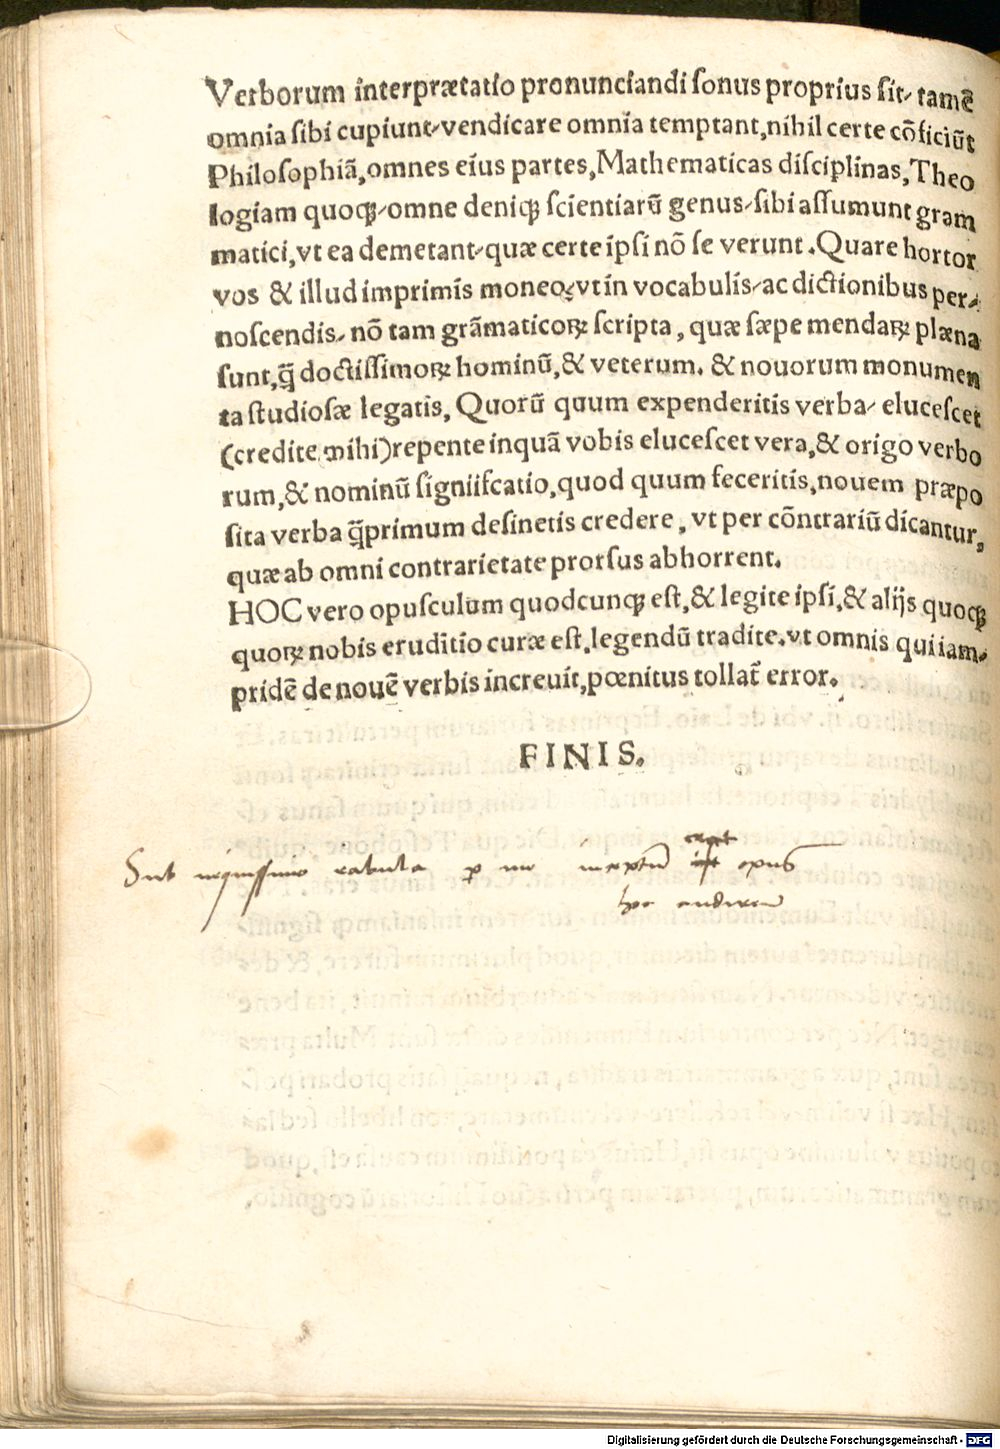 Verborum interprætatio pronunciandi ſonus proprius ſit, tamẽ
omnia ſibi cupiunt, vendicare omnia temptant, nihil certe cõficiũt
Philoſophiã, omnes eius partes, Mathematicas diſciplinas, Theo
logiam quoqꝫ, omne deniqꝫ ſcientiarũ genus, ſibi aſſumunt gram
matici, vt ea demetant, quæ certe ipſi nõ ſe verunt. Quare hortor
vos & illud imprimis moneo, vt in vocabulis, ac dictionibus per,
noſcendis, nõ tam grãmaticoꝝ ſcripta, quæ ſæpe mendaꝝ plæna
ſunt, q̃ doctiſſimoꝝ hominũ, & veterum. & nouorum monumen
ta ſtudioſæ legatis, Quorũ quum expenderitis verba, eluceſcet
(credite mihi) repente inquã vobis eluceſcet vera, & origo verbo
rum, & nominũ ſigniiſcatio, quod quum feceritis, nouem præpo
ſita verba q̃primum deſinetis credere, vt per cõntrariũ dicantur,
quæ ab omni contrarietate prorſus abhorrent.
HOC vero opuſculum quodcunqꝫ eſt, & legite ipſi, & alijs quoqꝫ
quoꝝ nobis eruditio curæ eſt, legendũ tradite, vt omnis qui iam,
pridẽ de nouẽ verbis increuit, pœnitus tollat̃ error.
FINIS.
opus
Digitalisierung gefördert durch die Deutsche Forschungsgemeinschaft - DFG